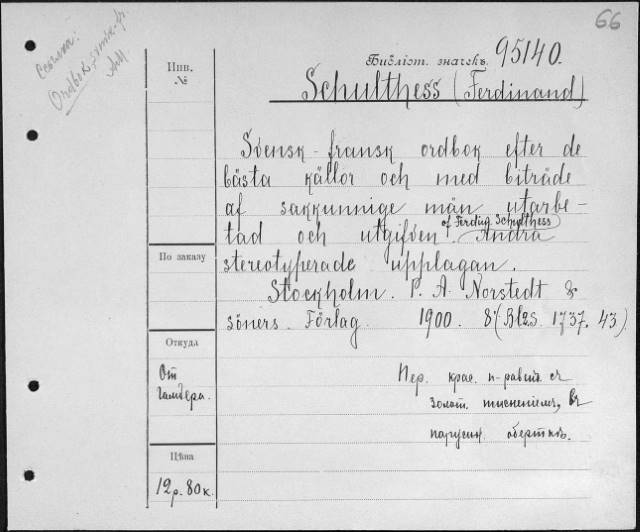 66
Ordbok
Инв.
№
Библіот. значекъ. 95140.
Schulthess (Ferdinand)
Svensk-fransk ordbok efter de
bästa källor och med biträde
af sakkunnige män utarbe-
tad och utgifven of Ferdin. Schulthess Andra
stereotyperade upplagan.
Stockholm. P. A. Norstedt &
söners. Förlag. 1900. 8°
По заказу
Откуда
От
Пер. крас. съ
золот. тисненіемъ, въ
парусин. оберткѣ.
Цѣна
12 р. 80 к.